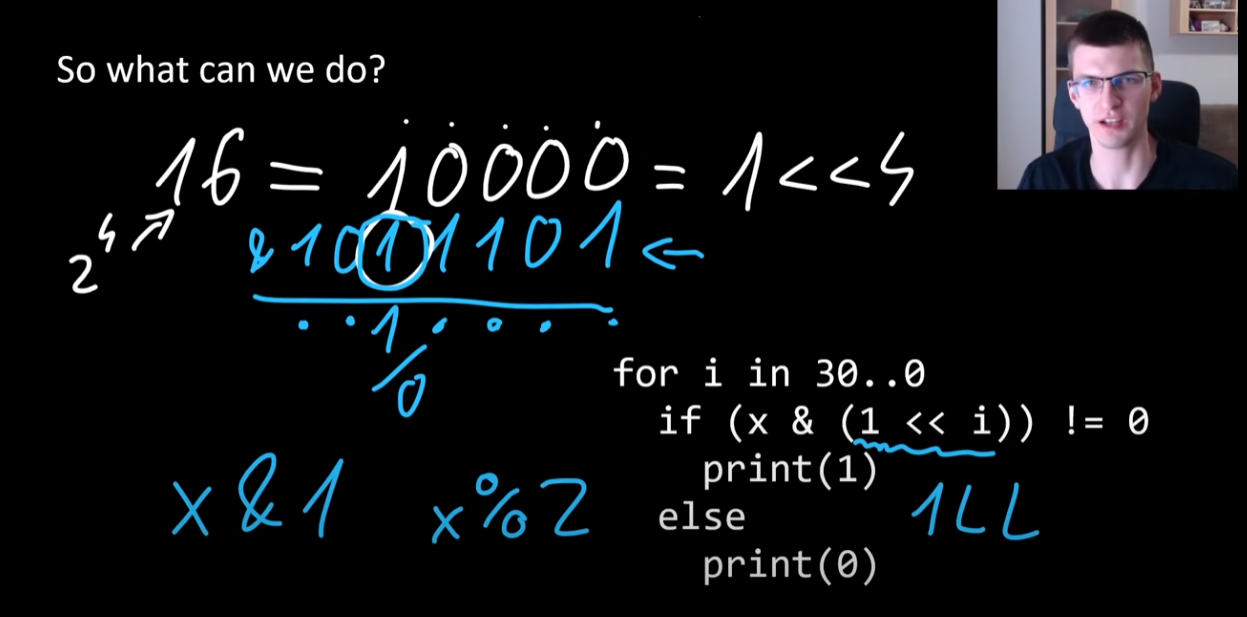 So what can we do?
16 = 10000 = 1<<4
2^4
&1011101
1
/0
for i in 30..0
if (x & (1 << i)) != 0
print(1)
else
print(0)
x&1 x%2
1LL